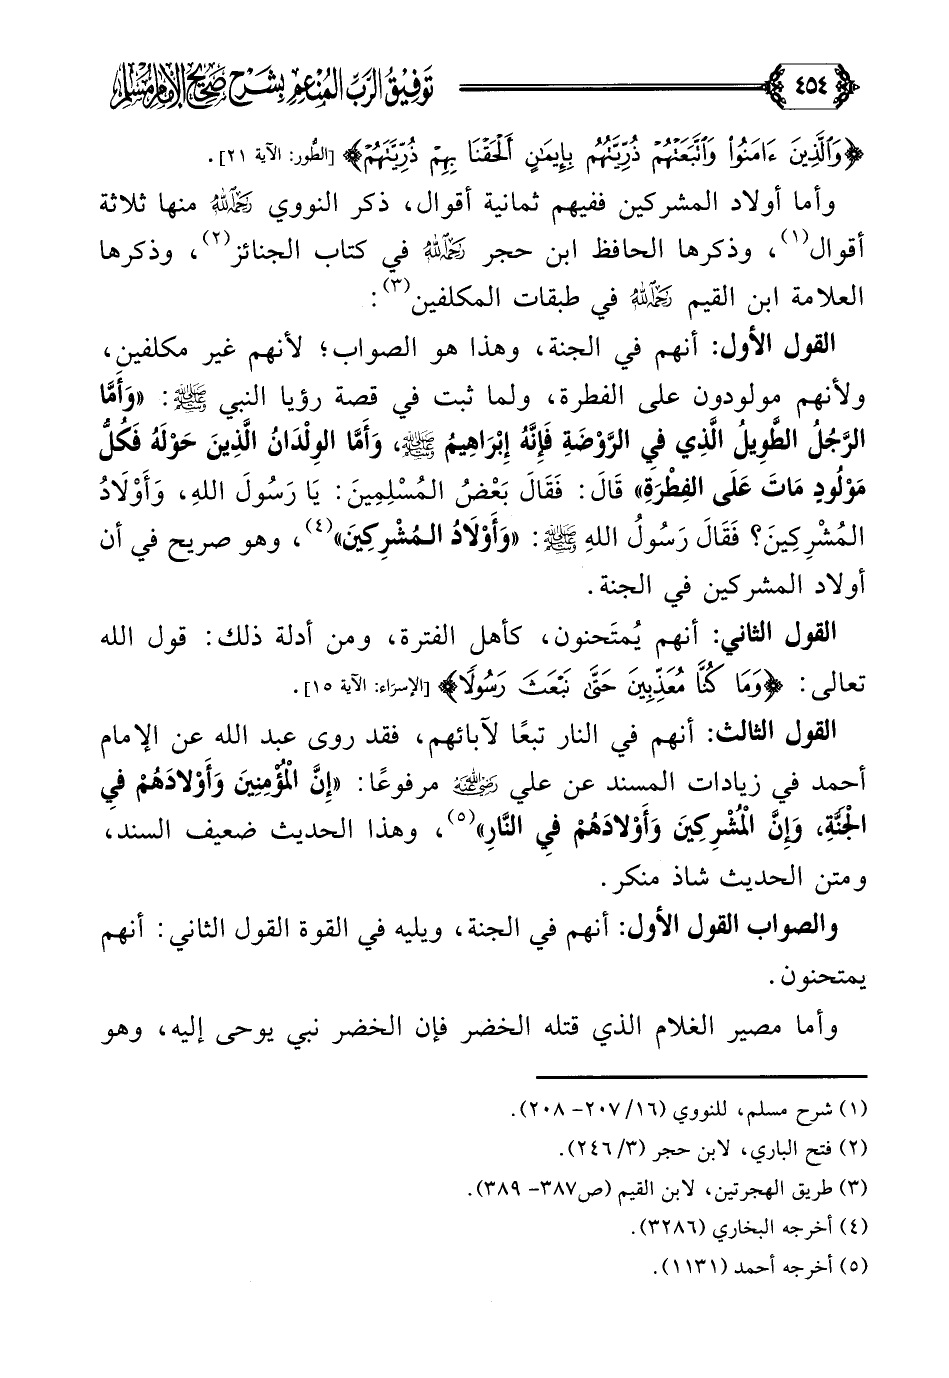 ٤٥٤ توفيق الرب المنعم بشرح صحيح الإمام مسلم
﴿وَٱلَّذِينَ ءَامَنُوا۟ وَٱتَّبَعَتْهُمْ ذُرِّيَّتُهُم بِإِيمَٰنٍ أَلْحَقْنَا بِهِمْ ذُرِّيَّتَهُمْ﴾ [الطُّور: الآية ٢١].
وأما أولاد المشركين ففيهم ثمانية أقوال، ذكر النووي رحمه الله منها ثلاثة
أقوال(١)، وذكرها الحافظ ابن حجر رحمه الله في كتاب الجنائز(٢)، وذكرها
العلامة ابن القيم رحمه الله في طبقات المكلفين(٣):
القول الأول: أنهم في الجنة، وهذا هو الصواب؛ لأنهم غير مكلفين،
ولأنهم مولودون على الفطرة، ولما ثبت في قصة رؤيا النبي ﷺ: «وَأَمَّا
الرَّجُلُ الطَّوِيلُ الَّذِي فِي الرَّوْضَةِ فَإِنَّهُ إِبْرَاهِيمُ ﷺ، وَأَمَّا الوِلْدَانُ الَّذِينَ حَوْلَهُ فَكُلُّ
مَوْلُودٍ مَاتَ عَلَى الفِطْرَةِ» قَالَ: فَقَالَ بَعْضُ المُسْلِمِينَ: يَا رَسُولَ اللهِ، وَأَوْلَادُ
المُشْرِكِينَ؟ فَقَالَ رَسُولُ اللهِ ﷺ: «وَأَوْلَادُ المُشْرِكِينَ»(٤)، وهو صريح في أن
أولاد المشركين في الجنة.
القول الثاني: أنهم يُمتَحنون، كأهل الفترة، ومن أدلة ذلك: قول الله
تعالى: ﴿وَمَا كُنَّا مُعَذِّبِينَ حَتَّىٰ نَبْعَثَ رَسُولًا﴾ [الإسرَاء: الآية ١٥].
القول الثالث: أنهم في النار تبعًا لآبائهم، فقد روى عبد الله عن الإمام
أحمد في زيادات المسند عن علي رضي الله عنه مرفوعًا: «إِنَّ الْمُؤْمِنِينَ وَأَوْلَادَهُمْ فِي
الْجَنَّةِ، وَإِنَّ الْمُشْرِكِينَ وَأَوْلَادَهُمْ فِي النَّارِ»(٥)، وهذا الحديث ضعيف السند،
ومتن الحديث شاذ منكر.
والصواب القول الأول: أنهم في الجنة، ويليه في القوة القول الثاني: أنهم
يمتحنون.
وأما مصير الغلام الذي قتله الخضر فإن الخضر نبي يوحى إليه، وهو
(١) شرح مسلم، للنووي (١٦/ ٢٠٧- ٢٠٨).
(٢) فتح الباري، لابن حجر (٣/ ٢٤٦).
(٣) طريق الهجرتين، لابن القيم (ص٣٨٧- ٣٨٩).
(٤) أخرجه البخاري (٣٢٨٦).
(٥) أخرجه أحمد (١١٣١).